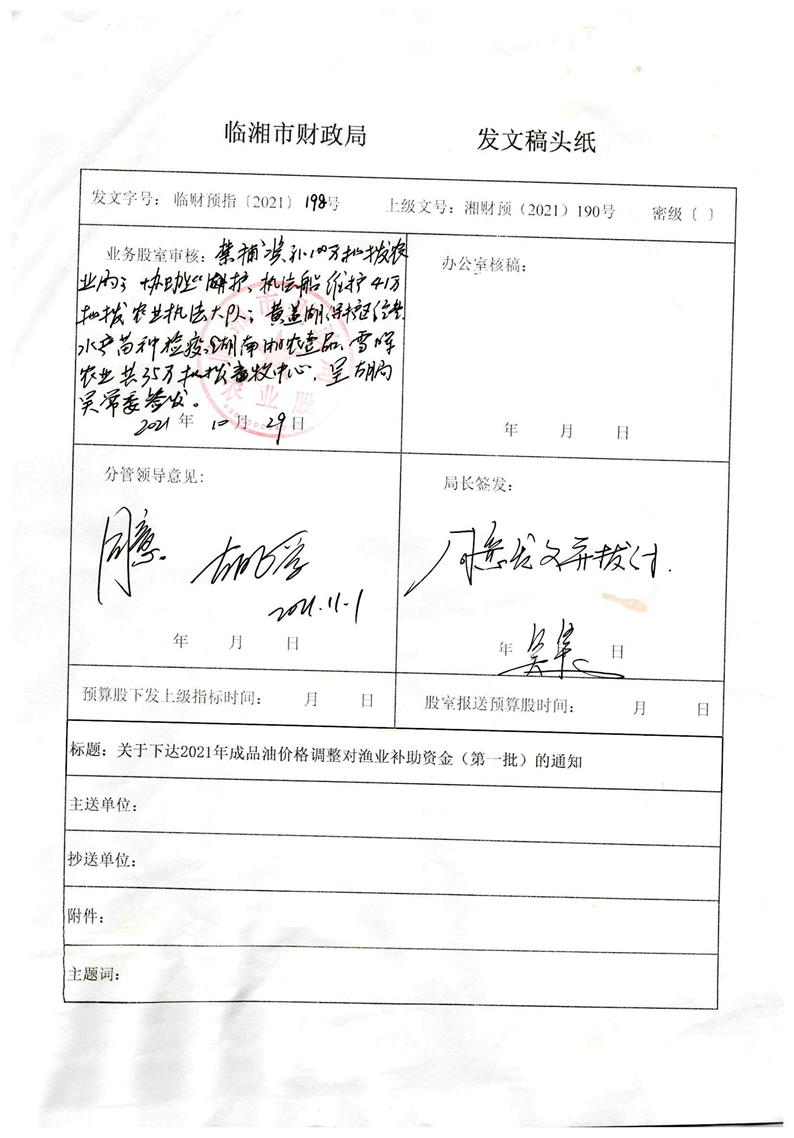 临湘市财政局 发文稿头纸
发文字号：临财预指〔2021〕198号 上级文号：湘财预（2021）190号 密级〔 〕
业务股室审核：禁捕 补 万拨农
业内；协助 维护、执法船维护41万
拨农业执法大队；黄盖湖保护
水产苗种检疫、湖南 农 品、雪
农业共35万 拨畜牧中心，呈胡局
吴常委签发。
农业股
2021年10月29日
办公室核稿：
年 月 日
分管领导意见：
同意。
2021.11.1
年 月 日
局长签发：
同意发文并拨付.
年 日
预算股下发上级指标时间： 月 日
股室报送预算股时间： 月 日
标题：关于下达2021年成品油价格调整对渔业补助资金（第一批）的通知
主送单位：
抄送单位：
附件：
主题词：